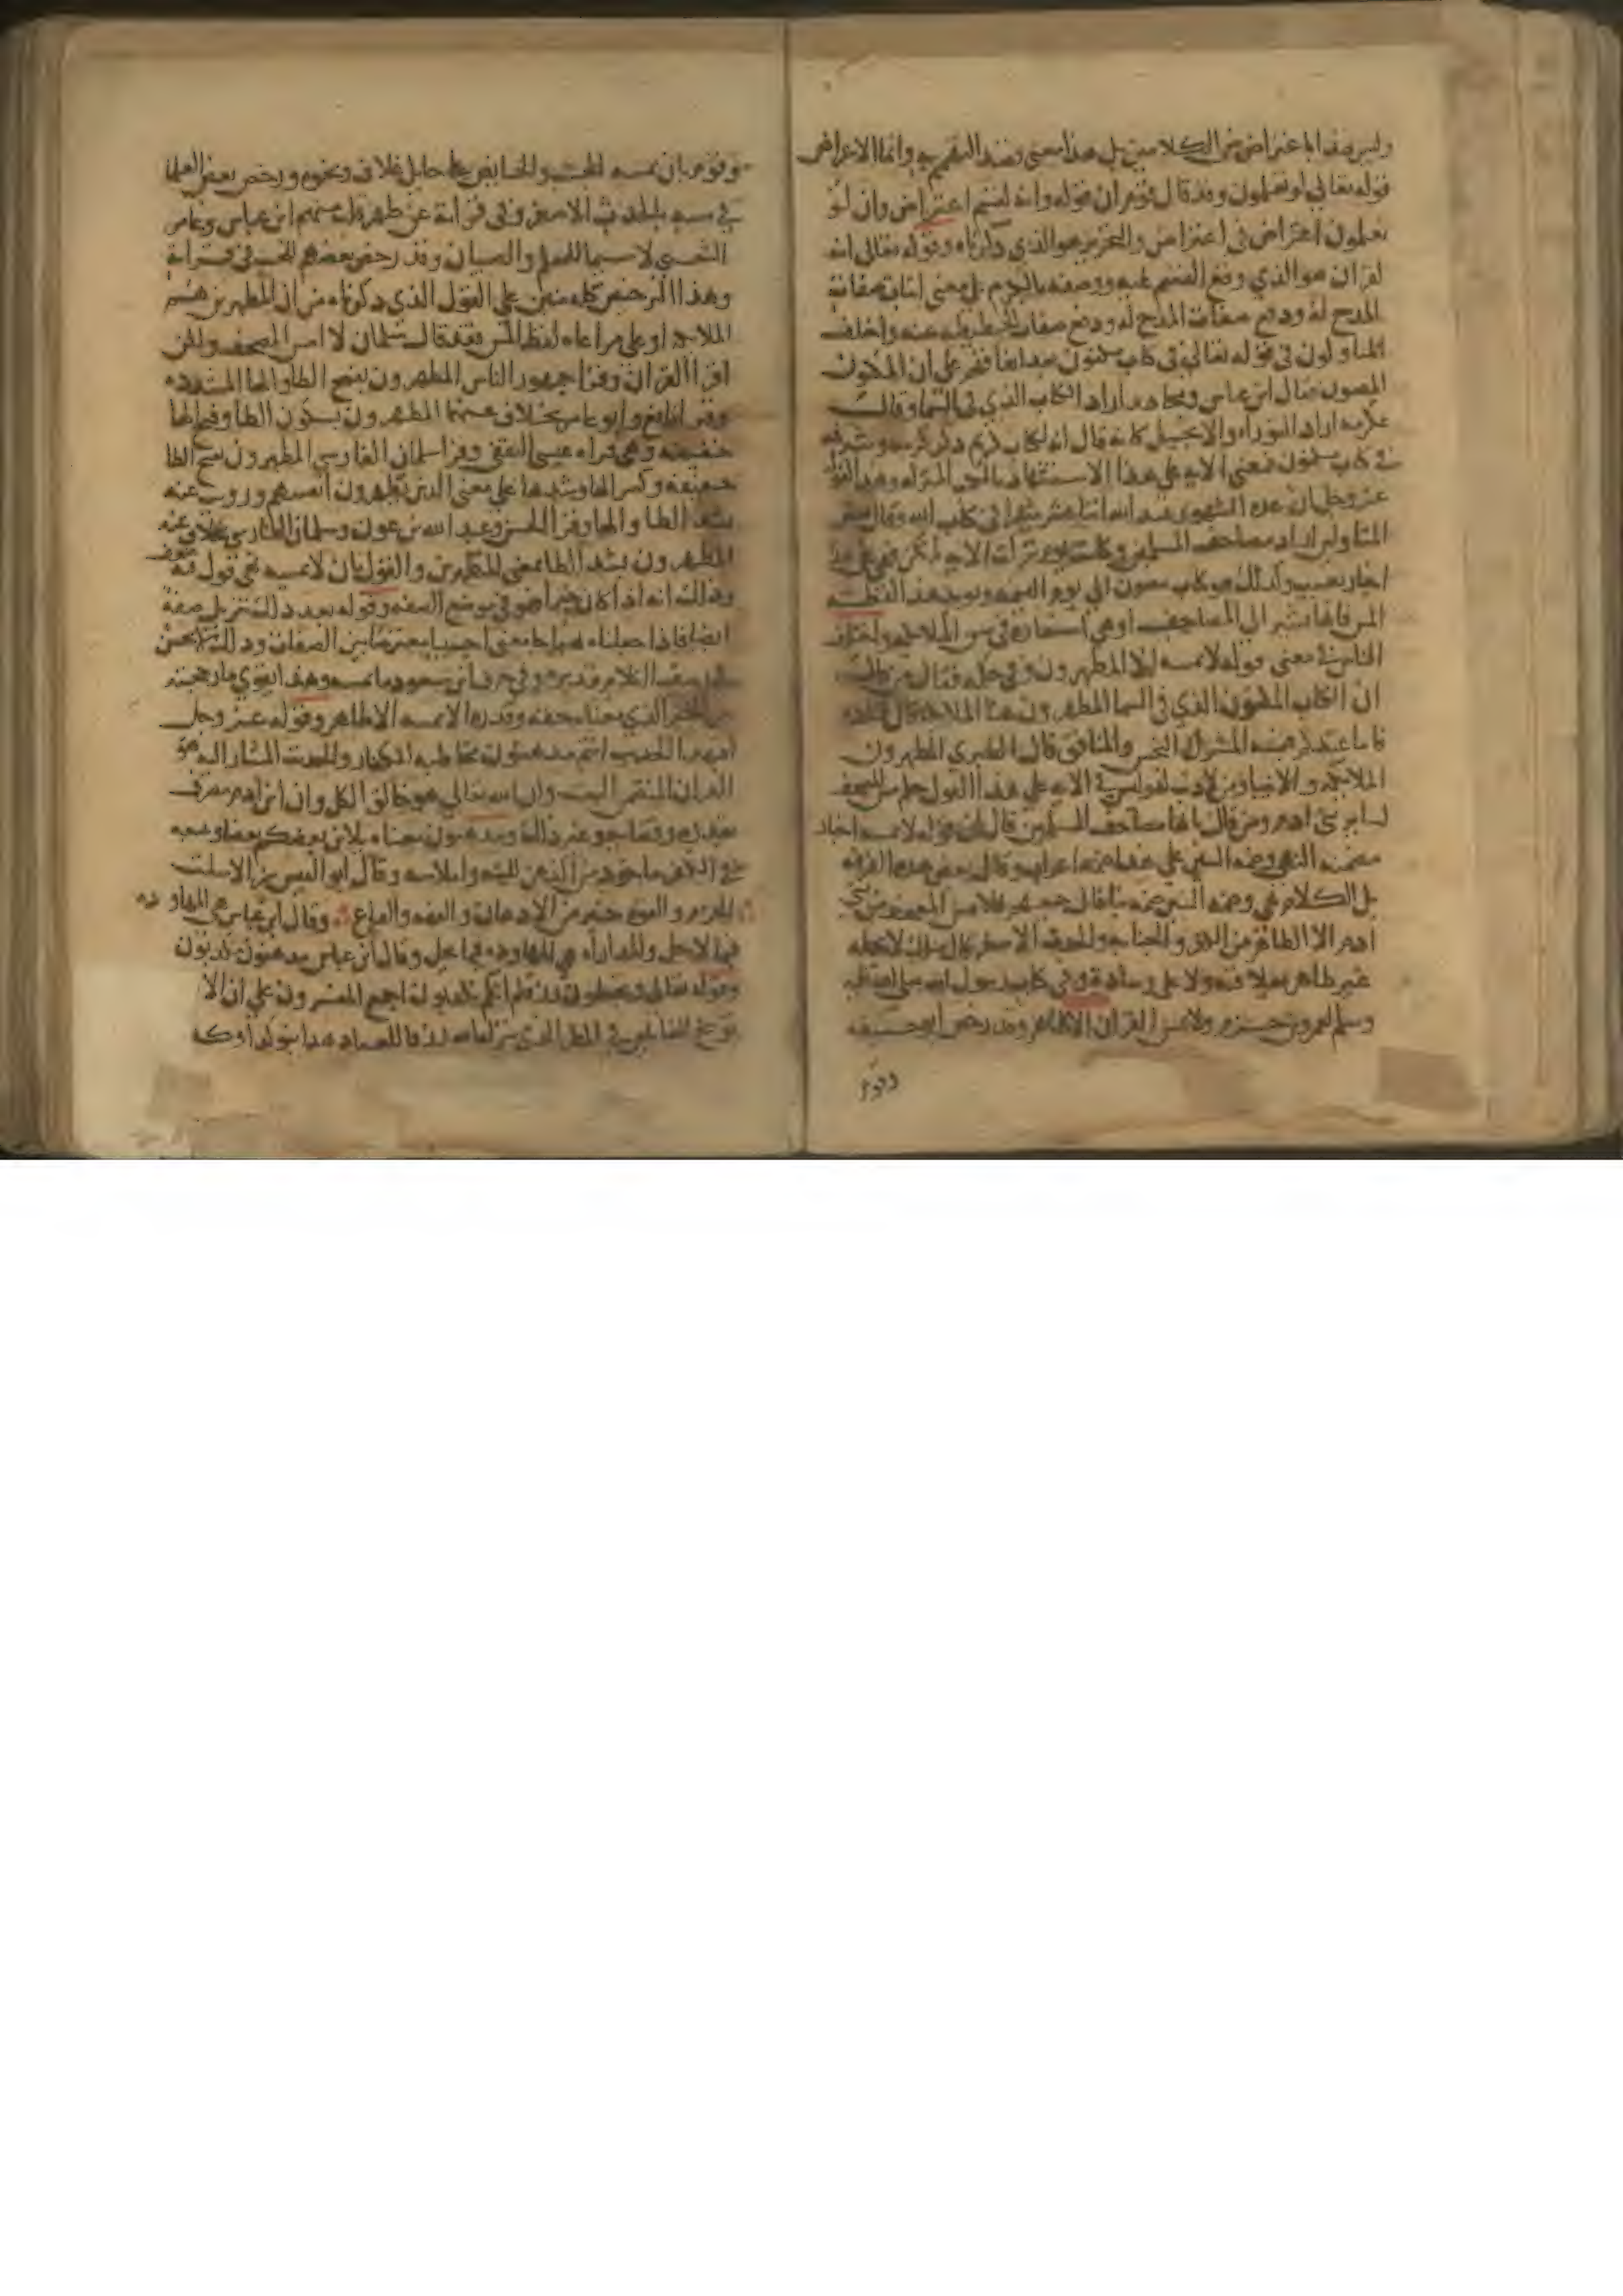 وليس هذا باعتراض بين الكلامين بل هذا معنى قصد التهمم به وانما الاعتراض
قوله تعالى لو تعلمون وقد قال قوم ان قوله وانه لقسم اعتراض وان لو
تعلمون اعتراض في اعتراض والتحرير هو الذي ذكرناه وقوله تعالى انه
لقران هو الذي وقع القسم عليه ووصفه بالكرم على معنى اثبات صفات
المدح له ودفع صفات الحطيطة عنه واختلف
المتاولون في قوله تعالى في كتاب مكنون بعد اتفاقهم على ان المكنون
المصون فقال ابن عباس ومجاهد اراد الكتاب الذي في السما وقال
عكرمه اراد التوراه والانجيل كانه قال انه لكتاب كريم ذكر كرمه وشرفه
في كتاب مكنون فمعنى الايه على هذا الاستشهاد بالكتب المنزله وهذا كقوله
عز وجل ان عدة الشهور عند الله اثنا عشر شهرا في كتاب الله وقال بعض
المتاولين اراد مصاحف المسلمين وكانت يوم نزلت الايه لم تكن فهي على هذا
اخبار بغيب وكذلك هو كتاب مصون الى يوم القيمه ويويد هذا لفظة
المس فانها تشير الى المصاحف او هي استعارة في مس الملايكة واختلف
الناس في معنى قوله لا يمسه الا المطهرون وفي حكمه فقال من قال
ان الكتاب المكنون الذي في السما المطهرون هنا الملايكة قال قتادة
فاما عندكم فيمسه المشرك النجس والمنافق قال الطبري المطهرون
الملايكة والانبيا ومن لا ذنب له وليس في الايه على هذا القول حكم مس المصحف
لسائر بني ادم ومن قال بانها مصاحف المسلمين قال ان قوله لا يمسه اخبار
مضمنه النهي وضمة السين على هذا ضمة اعراب وقال بعض هذه الفرقه
بل الكلام نهي وضمة السين ضمة بنا قال جميعهم فلا يمس المصحف من بني
ادم الا الطاهر من الكفر والجنابه والحدث الاصغر قال مالك لا يحمله
غير طاهر بعلاقته ولا على وساده وفي كتاب رسول الله صلى الله عليه
وسلم لعمرو بن حزم ولا يمس القران الا طاهر وقد رخص ابو حنيفه
وقوم
وقوم بان يمسه الجنب والحايض على حايل غلاف ونحوه ورخص بعض العلما
في مسه بالحدث الاصغر وفي قراته عن ظهر قلب منهم ابن عباس وعامر
الشعبي لا سيما للمعلم والصبيان وقد رخص بعضهم للجنب في قراته
وهذا الترخيص كله مبني على القول الذي ذكرناه من ان المطهرين هم
الملايكة او على مراعاه لفظ المس فقد قال سلمان لا امس المصحف ولكن
اقرا القران وقرا جمهور الناس المطهرون بفتح الطا والها المشدده
وقرا نافع وابو عامر بخلاف عنهما المطهرون بسكون الطا وفتح الها
خفيفه وهي قراه عيسى الثقفي وقرا سلمان الفارسي المطهرون بفتح الطا
خفيفه وكسر الها وشدها على معنى الذين يطهرون انفسهم ورويت عنه
بشد الطا والها وقرا الحسن وعبد الله بن عون وسلمان الفارسي بخلاف عنه
المطهرون بشد الطا بمعنى المتطهرين والقول بان لا يمسه نهي قول فيه ضعف
وذلك انه اذا كان خبرا فهو في موضع الصفه وقوله بعد ذلك تنزيل صفة
ايضا فاذا جعلناه نهيا جا معنى اجنبيا معترضا بين الصفات وذلك لا يحسن
في رصف الكلام فتدبره وفي حرف ابن مسعود ما يمسه وهذا يقوي ما رجحته
من الخبر الذي معناه حقه وقدره الا يمسه الا طاهر وقوله عز وجل
افبهذا الحديث انتم مدهنون مخاطبه للكفار والحديث المشار اليه هو
القران المتضمن البعث وان الله تعالى هو خالق الكل وان ابن ادم مصرف
بقدره وقضايه وغير ذلك ومدهنون معناه يلاين بعضكم بعضا ويتبعه
في الكفر ماخوذ من الدهن للينه واملاسه وقال ابو القيس بن الاسلت
الحزم والقوة خير من الادهان والفهة والهاع وقال ابن عباس هي المهاوده
فيما لا يحل والمداراه هي المهاوده فيما يحل وقال ابن عباس مدهنون مكذبون
وقوله تعالى وتجعلون رزقكم انكم تكذبون اجمع المفسرون على ان الا
توبيخ للقايلين في المطر الذي ينزله الله رزقا للعباد هذا بنو كذا وكذا